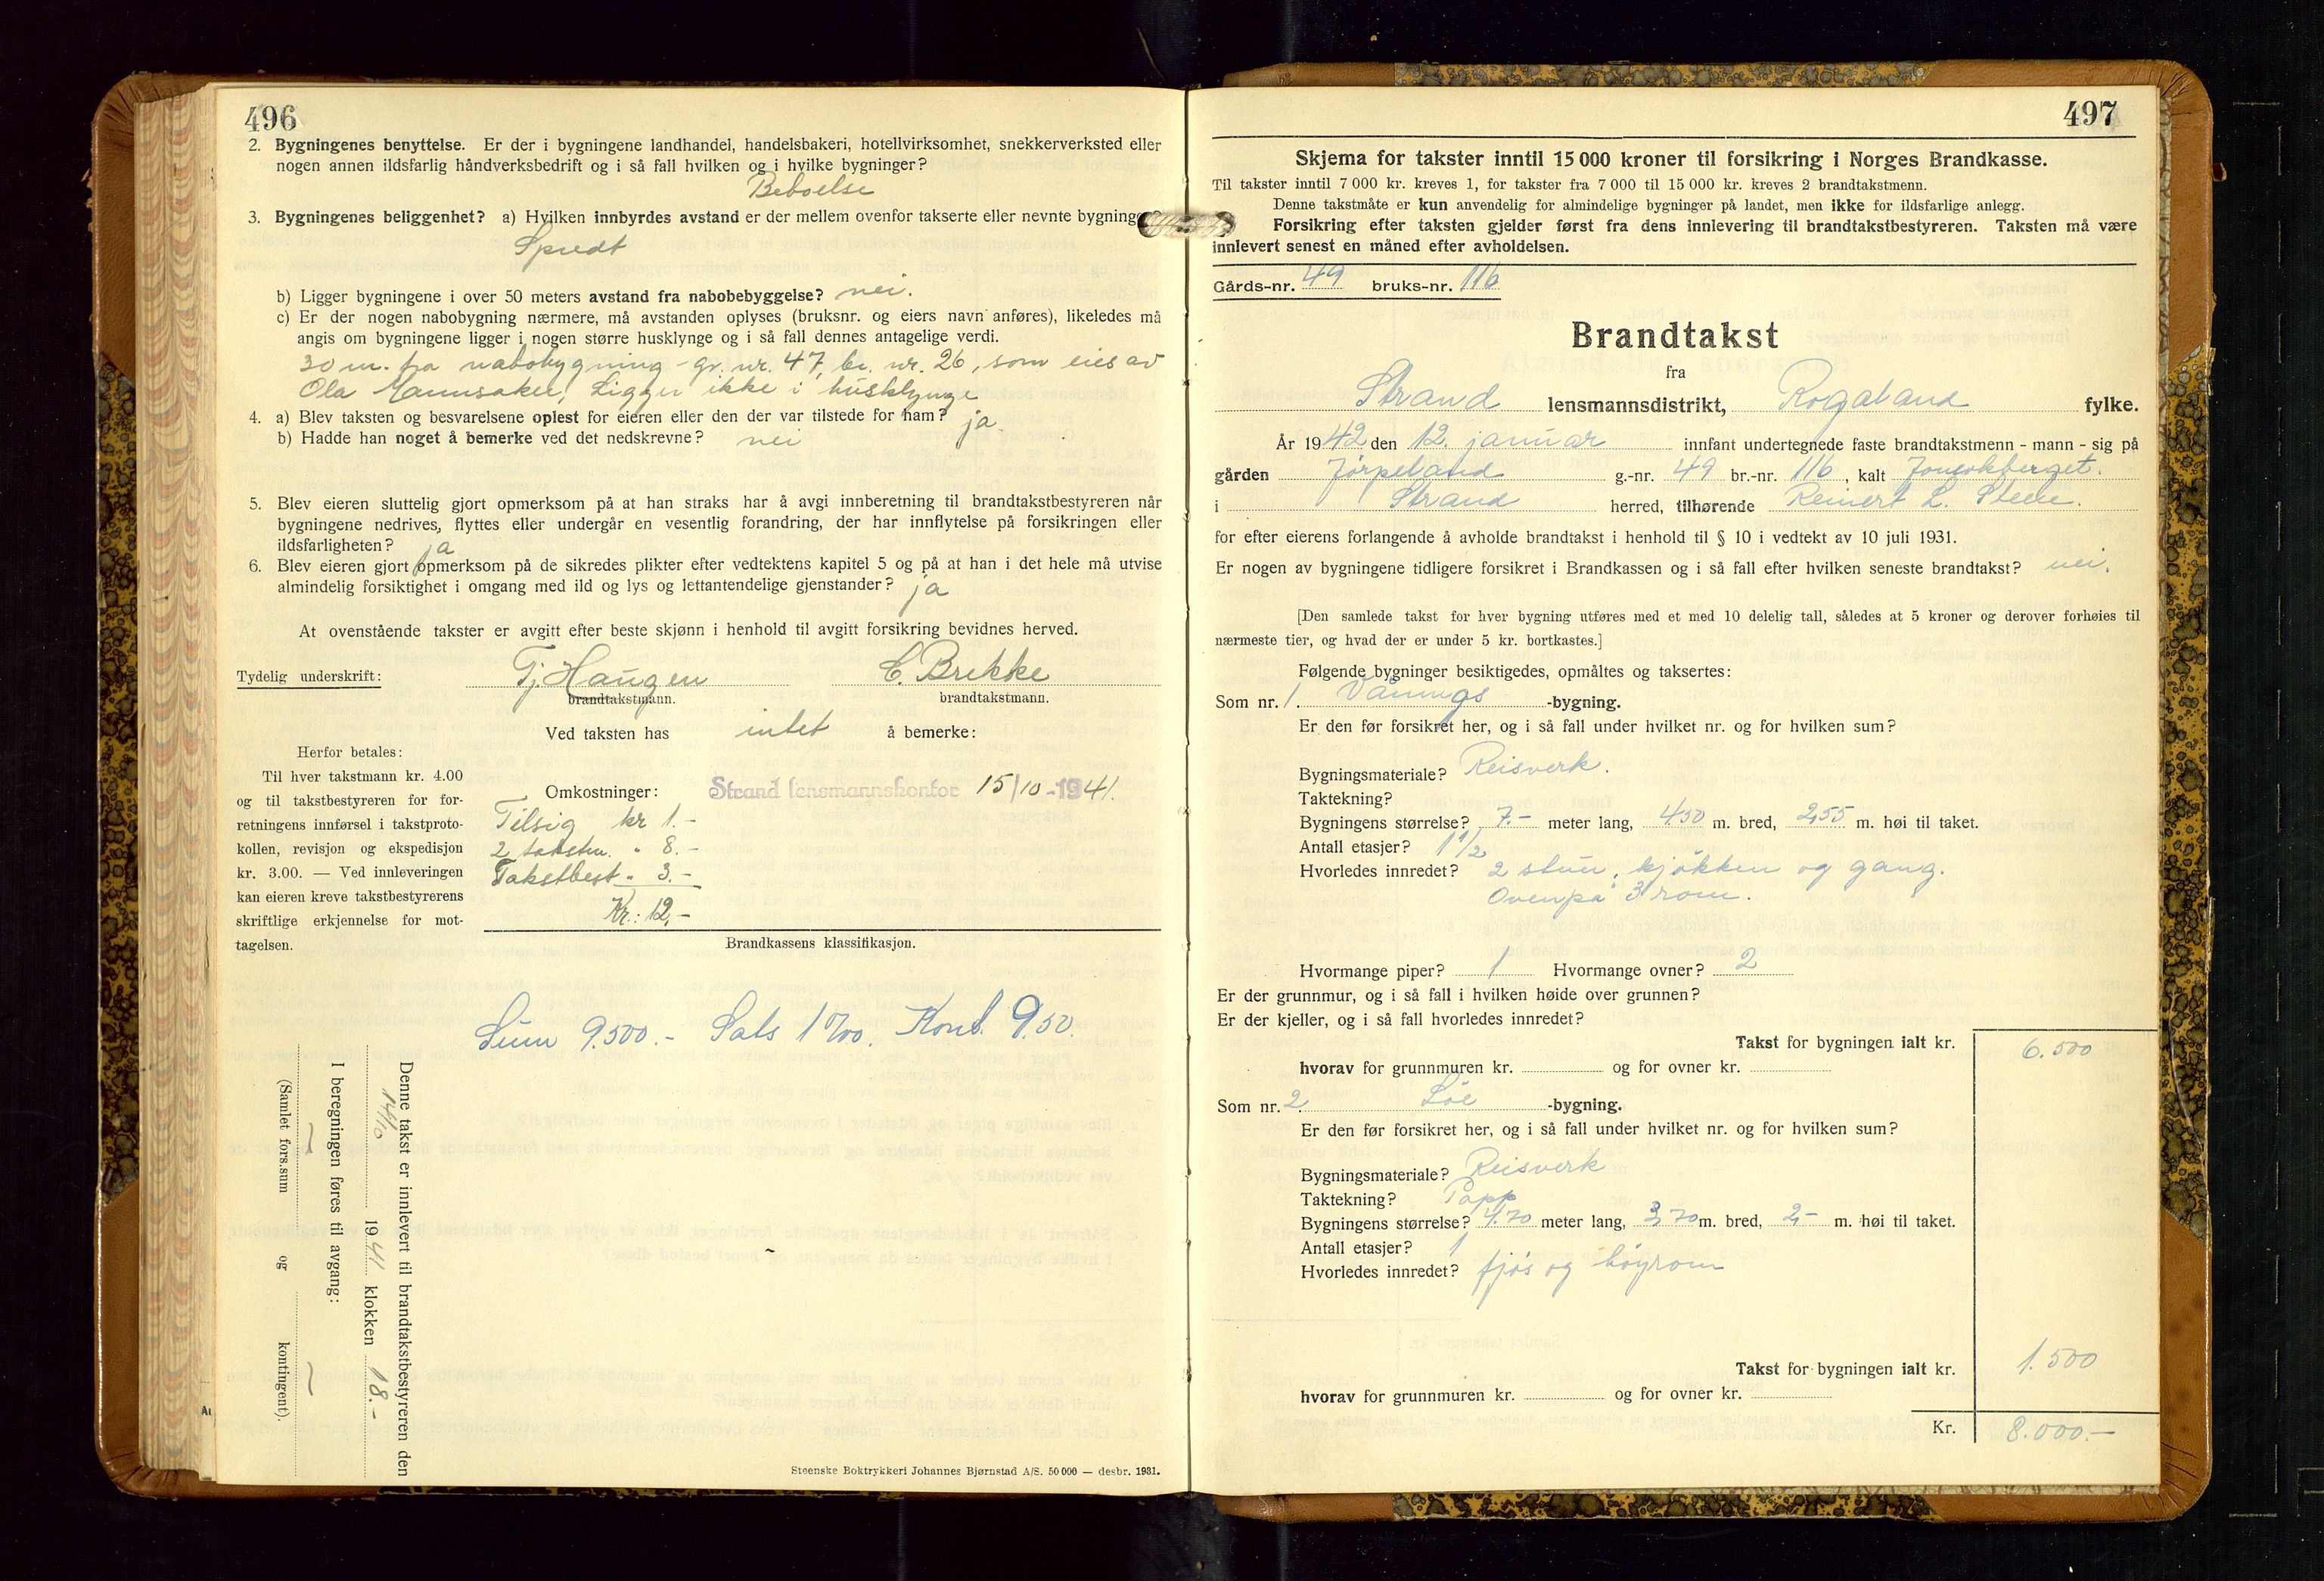 496
2. Bygningenes benyttelse. Er der i bygningene landhandel, handelsbakeri, hotellvirksomhet, snekkerverksted eller
nogen annen ildsfarlig håndverksbedrift og i så fall hvilken og i hvilke bygninger?
Beboelse
3. Bygningenes beliggenhet? a) Hvilken innbyrdes avstand er der mellem ovenfor takserte eller nevnte bygninger?
Spredt
b) Ligger bygningene i over 50 meters avstand fra nabobebyggelse? nei.
c) Er der nogen nabobygning nærmere, må avstanden oplyses (bruksnr. og eiers navn anføres), likeledes må
angis om bygningene ligger i nogen større husklynge og i så fall dennes antagelige verdi.
30 m. fra nabobygning - gr. nr. 47, br. nr. 26, som eies av
Ola Ligger ikke i husklynge
4. a) Blev taksten og besvarelsene oplest for eieren eller den der var tilstede for ham? ja
b) Hadde han noget å bemerke ved det nedskrevne? nei
5. Blev eieren sluttelig gjort opmerksom på at han straks har å avgi innberetning til brandtakstbestyreren når
bygningene nedrives, flyttes eller undergår en vesentlig forandring, der har innflytelse på forsikringen eller
ildsfarligheten? ja
6. Blev eieren gjort opmerksom på de sikredes plikter efter vedtektens kapitel 5 og på at han i det hele må utvise
almindelig forsiktighet i omgang med ild og lys og lettantendelige gjenstander? ja
At ovenstående takster er avgitt efter beste skjønn i henhold til avgitt forsikring bevidnes herved.
Tydelig underskrift: Tj. Haugen C. Brekke
brandtakstmann. brandtakstmann.
Ved taksten has intet å bemerke:
Herfor betales:
Til hver takstmann kr. 4.00
og til takstbestyreren for for-
retningens innførsel i takstproto-
kollen, revisjon og ekspedisjon
kr. 3.00. — Ved innleveringen
kan eieren kreve takstbestyrerens
skriftlige erkjennelse for mot-
tagelsen.
Omkostninger: Strand lensmannskontor 15/10-1941.
Tilsig kr 1.-
2 takstm. " 8.-
Takstbest " 3.-
Kr.: 12,-
Brandkassens klassifikasjon.
Sum 9.500.- Sats 1 ‰. Kont. 9.50.
Denne takst er innlevert til brandtakstbestyreren den
14/10 1941 klokken 18.-
I beregningen føres til avgang:
(Samlet fors.sum og kontingent).
Steenske Boktrykkeri Johannes Bjørnstad A/S. 50 000 — desbr. 1931.
497
Skjema for takster inntil 15 000 kroner til forsikring i Norges Brandkasse.
Til takster inntil 7 000 kr. kreves 1, for takster fra 7 000 til 15 000 kr. kreves 2 brandtakstmenn.
Denne takstmåte er kun anvendelig for almindelige bygninger på landet, men ikke for ildsfarlige anlegg.
Forsikring efter taksten gjelder først fra dens innlevering til brandtakstbestyreren. Taksten må være
innlevert senest en måned efter avholdelsen.
Gårds-nr. 49 bruks-nr. 116
Brandtakst
fra
Strand lensmannsdistrikt, Rogaland fylke.
År 1942 den 12. januar innfant undertegnede faste brandtakstmenn - mann - sig på
gården Jørpeland g.-nr. 49 br.-nr. 116, kalt Jonsokberget.
i Strand herred, tilhørende Reinert L.
for efter eierens forlangende å avholde brandtakst i henhold til § 10 i vedtekt av 10 juli 1931.
Er nogen av bygningene tidligere forsikret i Brandkassen og i så fall efter hvilken seneste brandtakst? nei.
[Den samlede takst for hver bygning utføres med et med 10 delelig tall, således at 5 kroner og derover forhøies til
nærmeste tier, og hvad der er under 5 kr. bortkastes.]
Følgende bygninger besiktigedes, opmåltes og taksertes:
Som nr. 1. Vånings -bygning.
Er den før forsikret her, og i så fall under hvilket nr. og for hvilken sum?
Bygningsmateriale? Reisverk.
Taktekning?
Bygningens størrelse? 7.- meter lang, 4.50 m. bred, 2,55 m. høi til taket.
Antall etasjer? 1 1/2
Hvorledes innredet? 2 stuer, kjøkken og gang.
Ovenpå 3 rom.
Hvormange piper? 1 Hvormange ovner? 2
Er der grunnmur, og i så fall i hvilken høide over grunnen?
Er der kjeller, og i så fall hvorledes innredet?
Takst for bygningen ialt kr. 6.500
hvorav for grunnmuren kr. og for ovner kr.
Som nr. 2. Løe -bygning.
Er den før forsikret her, og i så fall under hvilket nr. og for hvilken sum?
Bygningsmateriale? Reisverk
Taktekning? Papp
Bygningens størrelse? 4.70 meter lang, 3,70 m. bred, 2,- m. høi til taket.
Antall etasjer? 1
Hvorledes innredet? fjøs og høyrom
Takst for bygningen ialt kr. 1.500
hvorav for grunnmuren kr. og for ovner kr.
Kr. 8.000.-